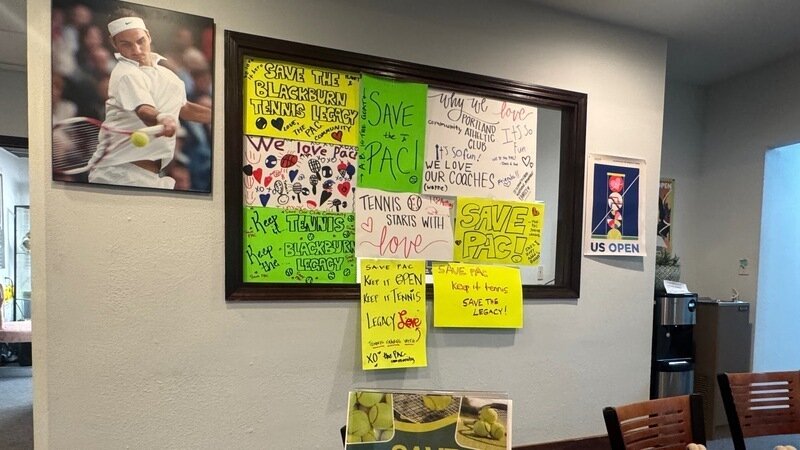 SAVE THE
BLACKBURN
TENNIS LEGACY
LOVE, THE PAC
COMMUNITY
SAVE
THE
PAC!
Why we love
community
PORTLAND
ATHLETIC
CLUB
It's so fun!
WE LOVE
OUR COACHES
It's
fun
We love Pac
xo
Keep it TENNIS
Keep the BLACKBURN
LEGACY
TENNIS
STARTS WITH
love
SAVE
PAC!
SAVE PAC
KEEP IT OPEN
KEEP IT TENNIS
LEGACY Love
TENNIS STARTS WITH
XO the PAC
community
SAVE PAC
Keep it tennis
SAVE THE
LEGACY!
US OPEN
SAVE